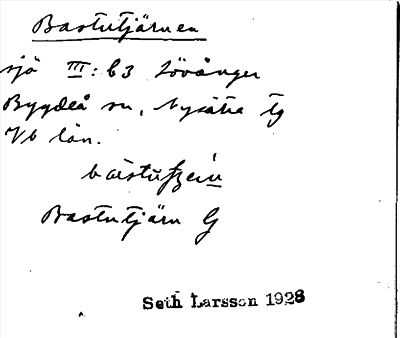 Bastutjärnen
sjö III: b3 Lövånger
Bygdeå sn, Nysätra tg
Vb län.
Bastutjärn G
Seth Larsson 1928